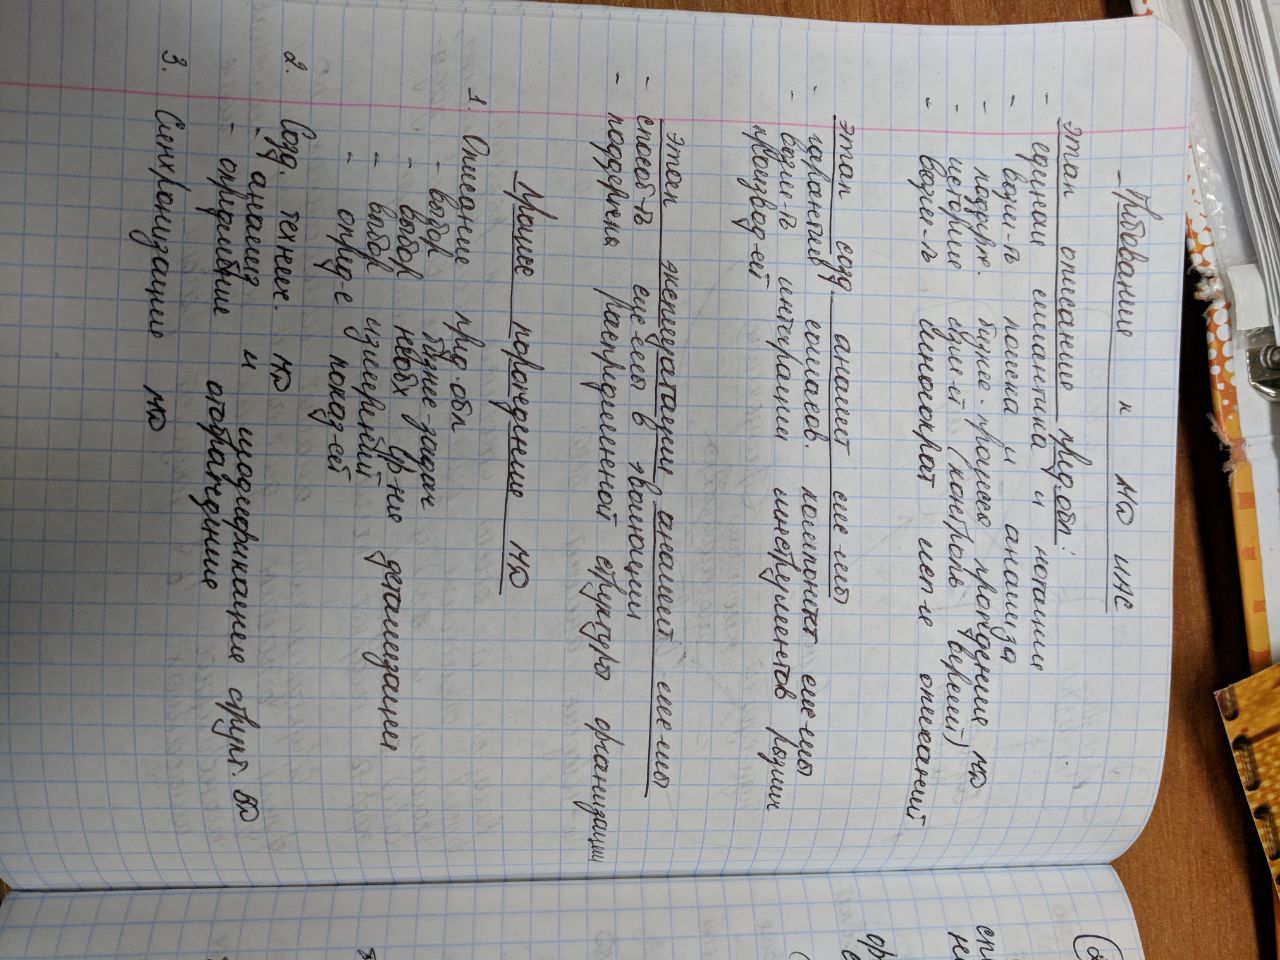 Требования к МД ИПС
этап описание пред. обл.:
- единая семантика и нотация
- возм-ть поиска и анализа
- поддерж. бизнес-процесса прохождения МД
- история врем-ет (контроль версий)
- возм-ть многократ исп-е описаний
этап созд. аналит сис-мы
- гарантия соглас. компонент сис-мы
- возм-ть интеграции инструментов разных
производ-ей
этап эксплуатации аналит сис-мы
- способ-ть сис-мы в эволюции
- поддержка распределенной структуры организации
Процесс порождения МД
1. Описание пред обл
- выбор бизнес-задач
- выбор необх ур-ня детализации
- выбор измерений
- опред-е показ-ей
2. Созд. технич. МД
- анализ и модификация структ. БД
- определение отображение
3. Синхронизация МД